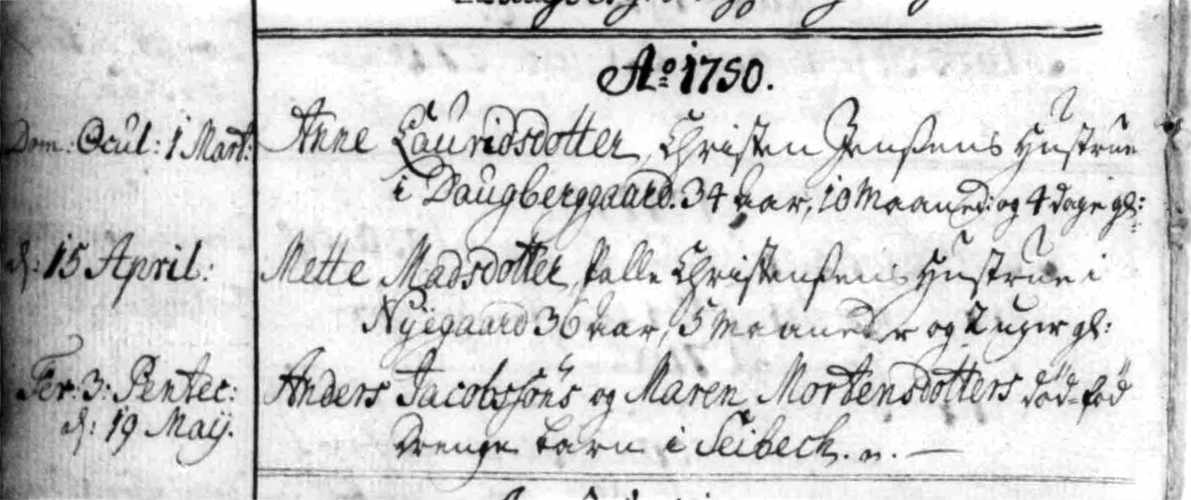 Ao 1750.
Dom: Ocul: 1 Mart: Anne Lauridsdotter, Christen Jenßens Hustrue
i Daugberggaard. 34 aar, 10 Maaned: og 4 dage gl:
d: 15 April: Mette Madsdotter, Palle Christenßens Hustrue i
Nyegaard 36 aar, 5 Maaneder og 2 uger gl:
Fer: 3: Pentec: Anders Jacobsføns og Maren Mortensdotters død-fød
d: 19 Maij. Drenge barn i Seibeck.